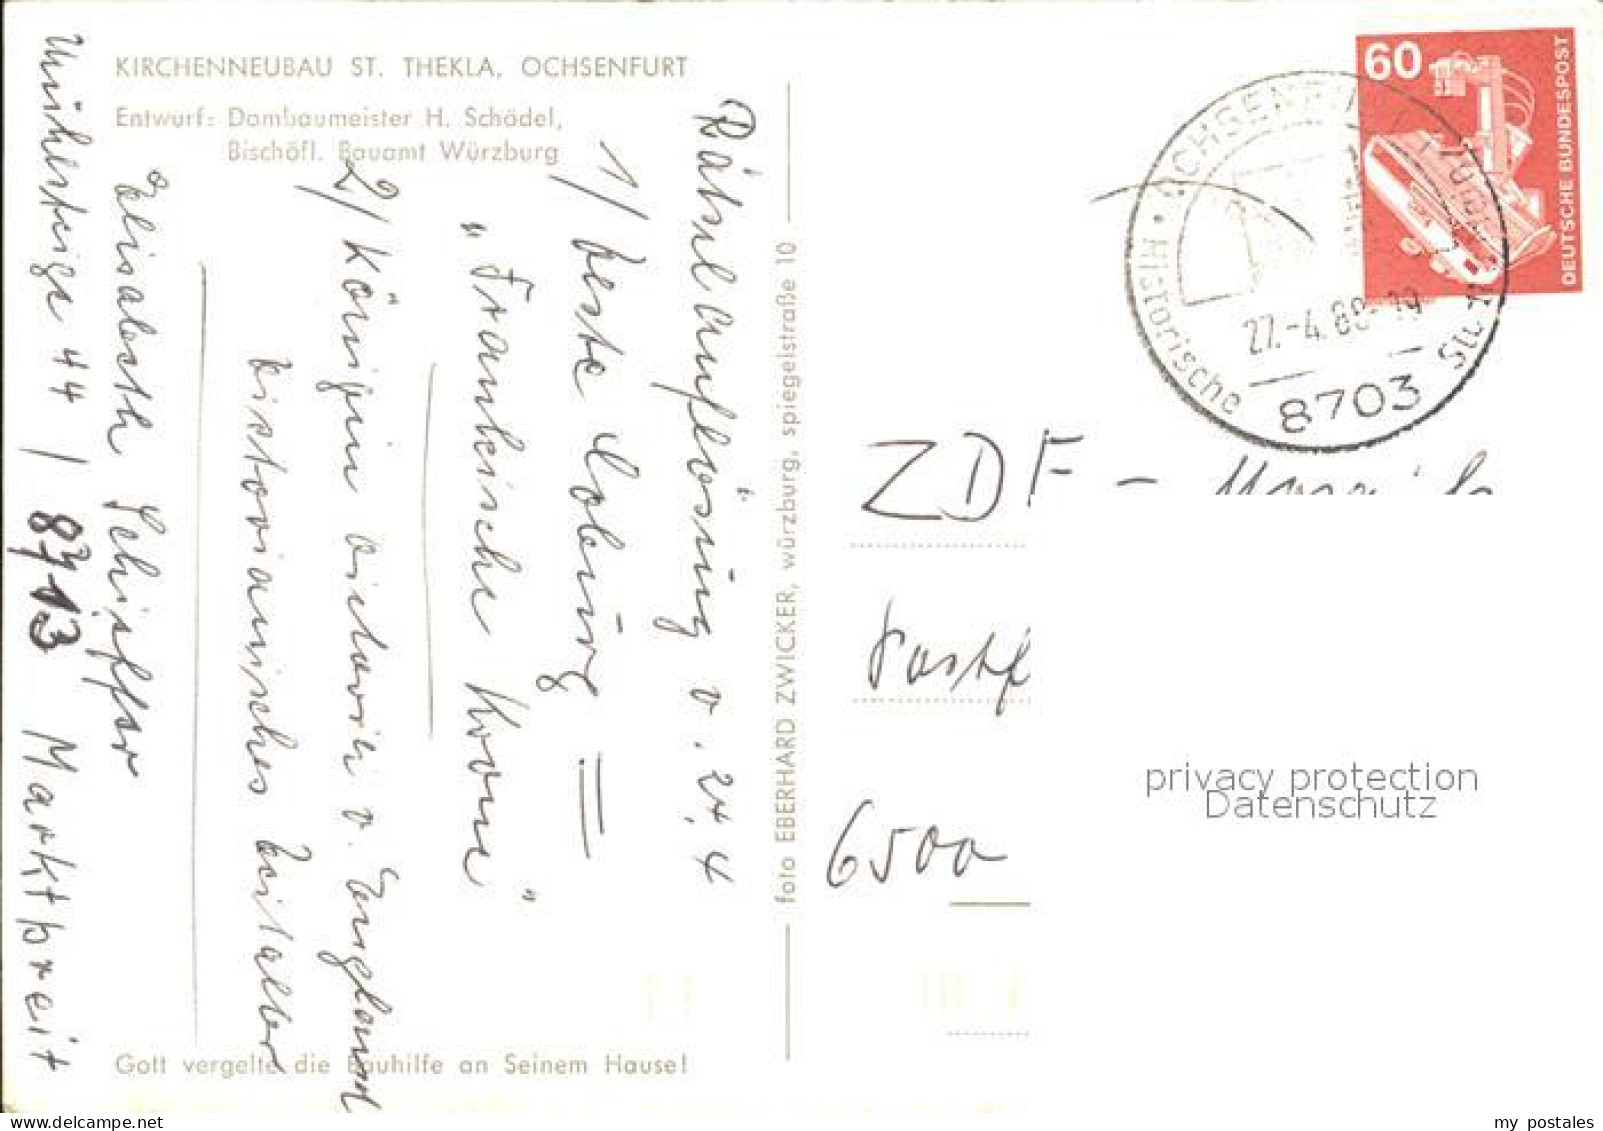 KIRCHENNEUBAU ST. THEKLA, OCHSENFURT
Entwurf: Dombaumeister H. Schädel,
Bischöfl. Bauamt Würzburg
Rätselauflösung v. 24.4
1/ Feste Coburg
"Fränkische Krone"
2/ Königin Victoria v. England
Victorianisches Zeitalter
Elisabeth Schiffer
Mühlsteige 44 / 8713 Marktbreit
Gott vergelte die Bauhilfe an Seinem Hause!
foto EBERHARD ZWICKER, würzburg, spiegelstraße 10
60
DEUTSCHE BUNDESPOST
Historische
27.-4.80-19
8703
ZDF -
Postf
6500
privacy protection
Datenschutz
my postales